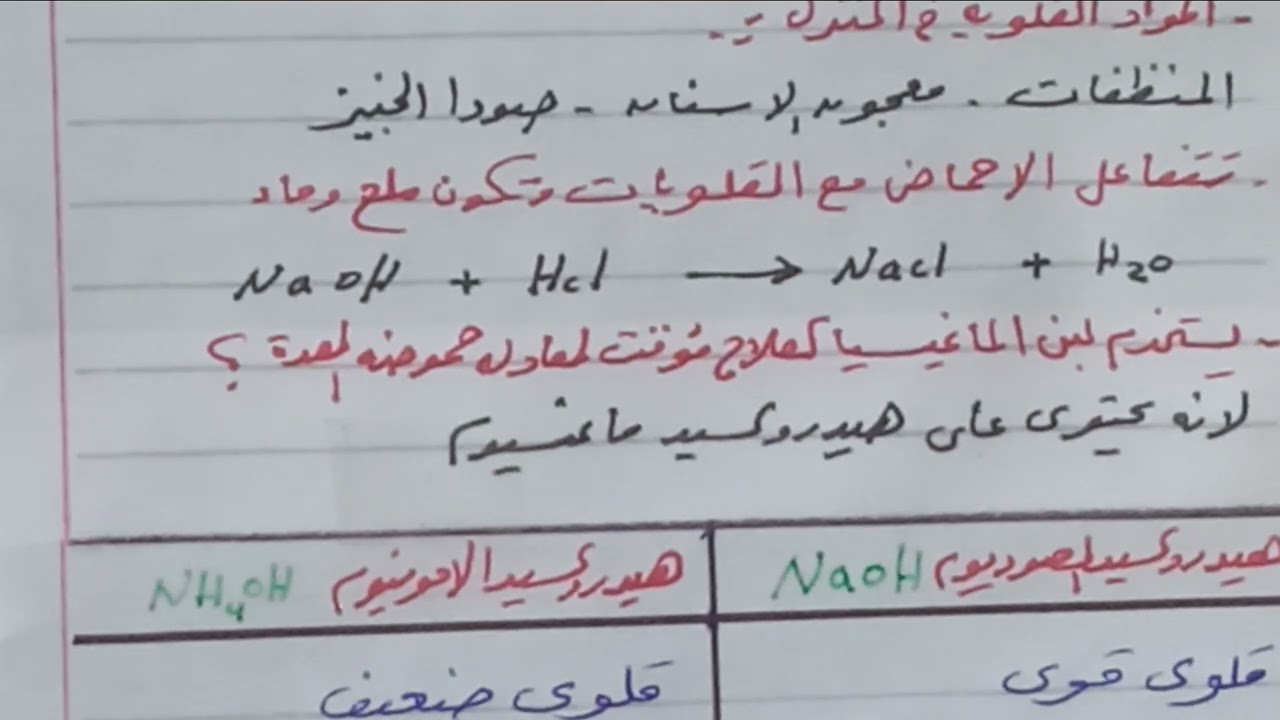 - المواد القلوية في المنزل :-
المنظفات . معجون الاسنان - صودا الخبيز
. تتفاعل الاحماض مع القلويات وتكون ملح وماء
NaOH + Hcl → Nacl + H2O
- يستخدم لبن الماغيسيا كعلاج مؤقت لمعادله حموضه المعدة ؟
لانه يحتوى على هيدروكسيد ماغنسيوم
هيدروكسيد الصوديوم NaOH
هيدروكسيد الامونيوم NH4OH
قلوى قوى
قلوى ضعيف